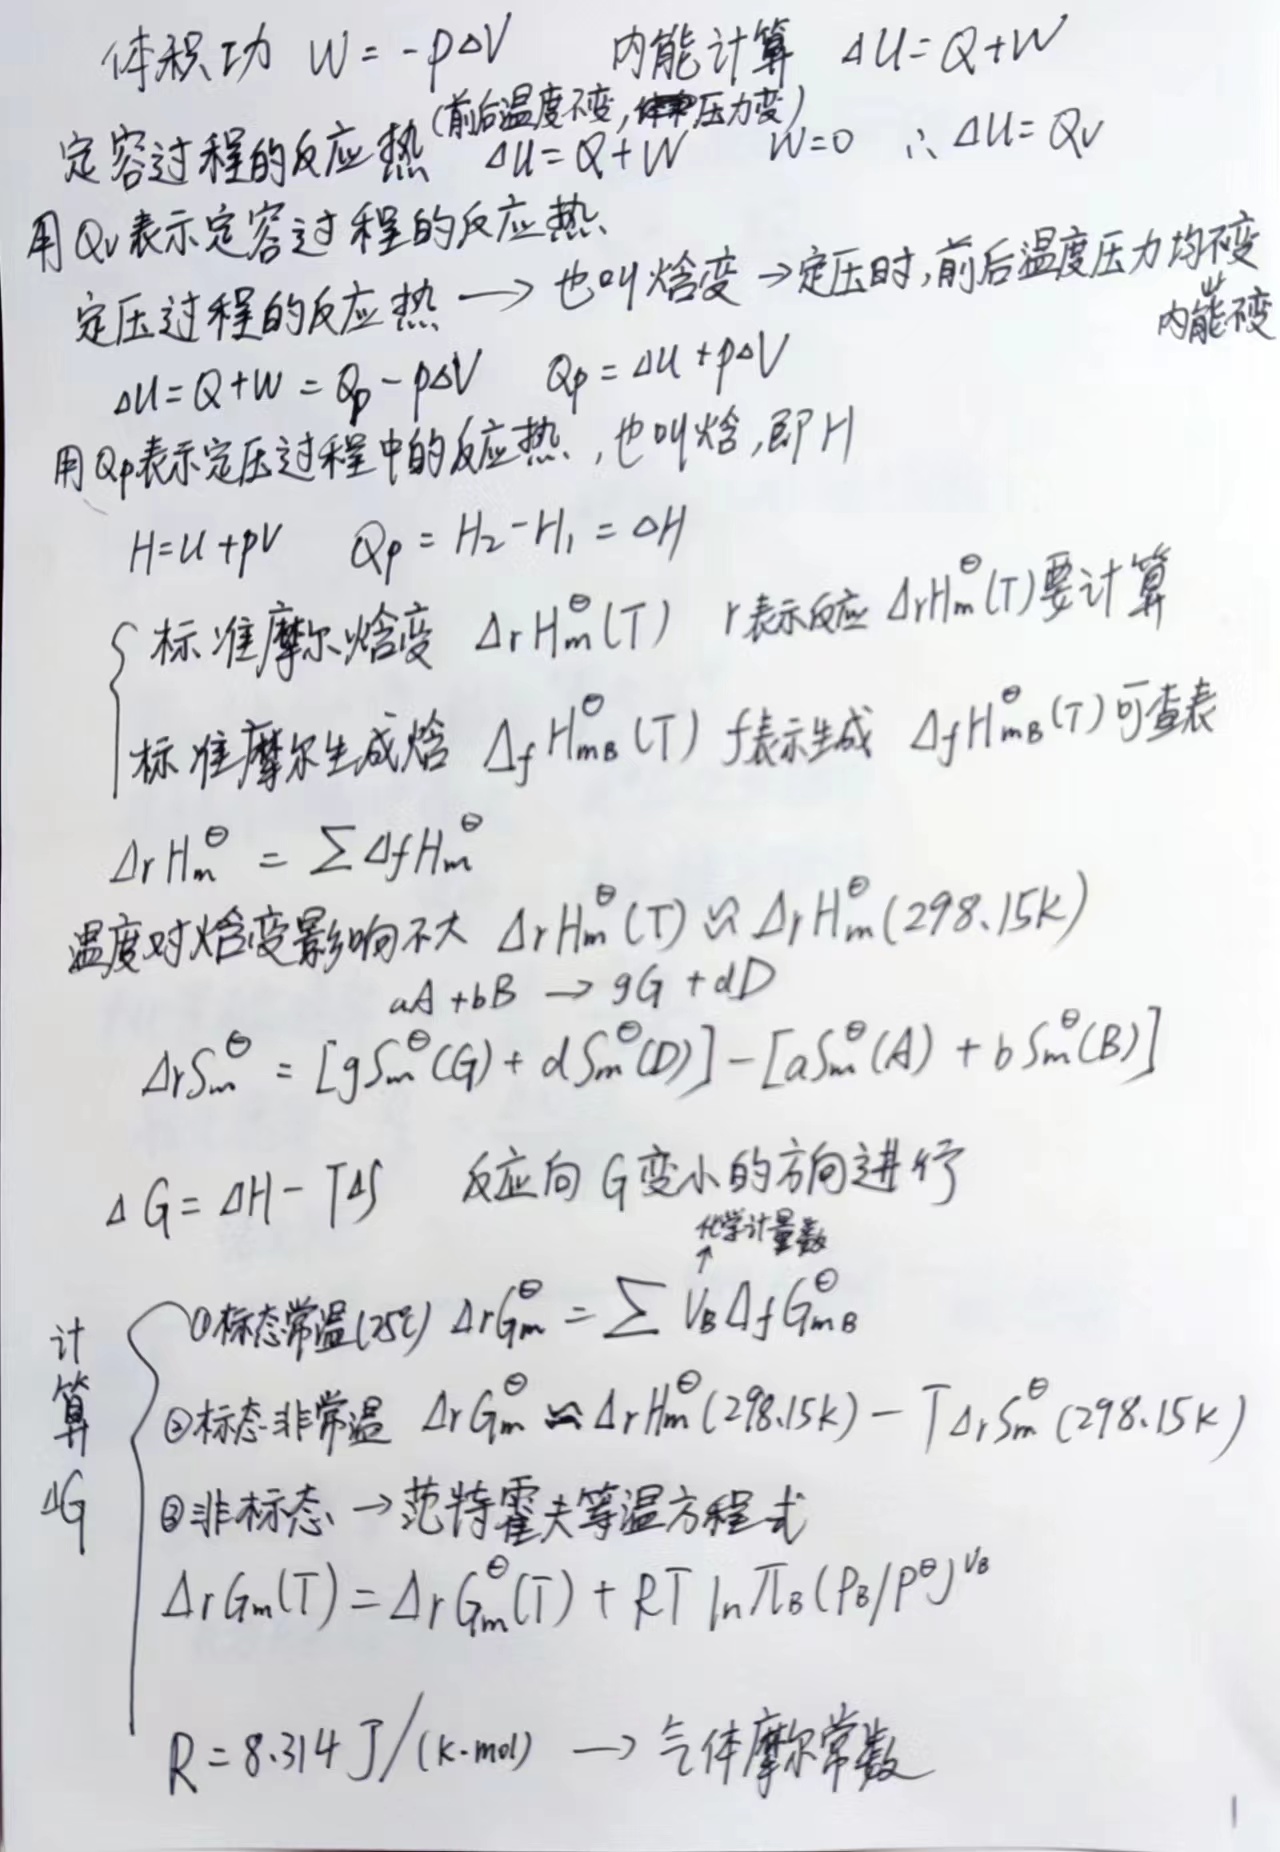 体积功 W = -pΔV 内能计算 ΔU = Q + W
(前后温度不变, 压力变)
定容过程的反应热 ΔU = Q + W W = 0 ∴ ΔU = Qv
用Qv表示定容过程的反应热
定压过程的反应热 → 也叫焓变 → 定压时,前后温度压力均不变
⇓
内能不变
ΔU = Q + W = Qp - pΔV Qp = ΔU + pΔV
用Qp表示定压过程中的反应热,也叫焓,即H
H = U + pV Qp = H₂ - H₁ = ΔH
标准摩尔焓变 ΔrHm^⊖(T) r表示反应 ΔrHm^⊖(T)要计算
标准摩尔生成焓 ΔfHmB^⊖(T) f表示生成 ΔfHmB^⊖(T)可查表
ΔrHm^⊖ = ΣΔfHm^⊖
温度对焓变影响不大 ΔrHm^⊖(T) ≈ ΔrHm^⊖(298.15K)
aA + bB → gG + dD
ΔrSm^⊖ = [gSm^⊖(G) + dSm^⊖(D)] - [aSm^⊖(A) + bSm^⊖(B)]
ΔG = ΔH - TΔS 反应向G变小的方向进行
化学计量数
↑
计算ΔG
①标态常温(25℃) ΔrGm^⊖ = Σ νB ΔfGmB^⊖
②标态非常温 ΔrGm^⊖ ≈ ΔrHm^⊖(298.15K) - TΔrSm^⊖(298.15K)
③非标态 → 范特霍夫等温方程式
ΔrGm(T) = ΔrGm^⊖(T) + RT ln πB(PB/P^⊖)^νB
R = 8.314 J/(K·mol) → 气体摩尔常数
1